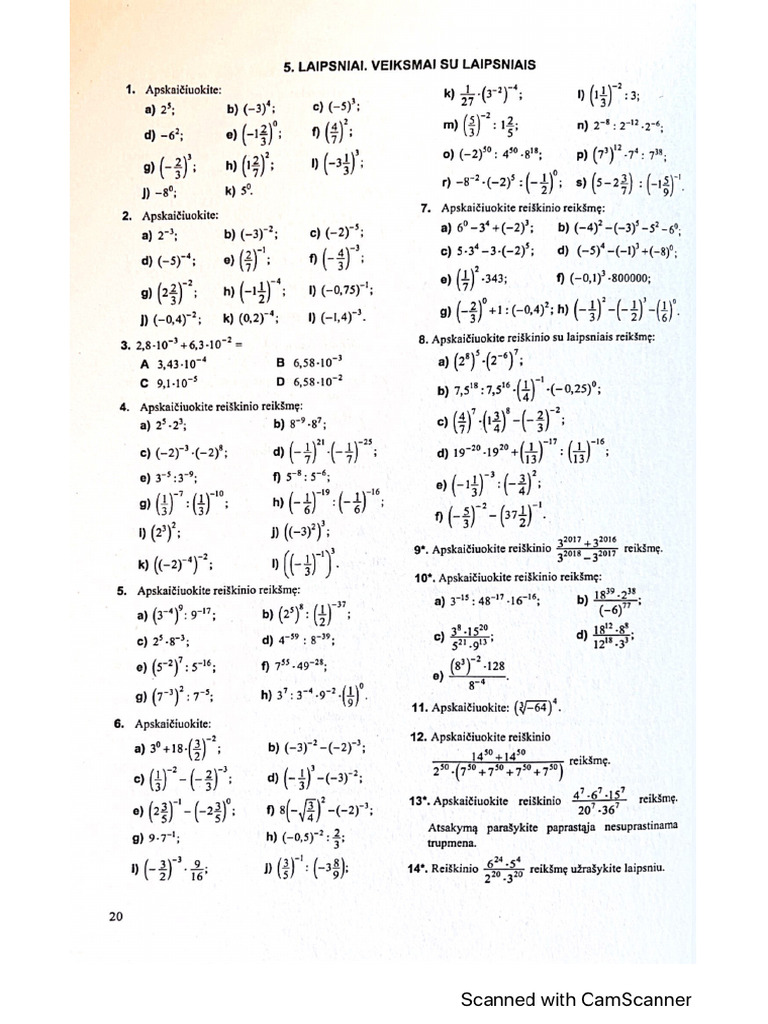 5. LAIPSNIAI. VEIKSMAI SU LAIPSNIAIS
1. Apskaičiuokite:
a) 2⁵; b) (−3)⁴; c) (−5)³;
d) −6²; e) (−1 2/3)⁰; f) (4/7)²;
g) (−2/3)³; h) (1 2/7)²; i) (−3 1/3)³;
j) −8⁰; k) 5⁰.
2. Apskaičiuokite:
a) 2⁻³; b) (−3)⁻²; c) (−2)⁻⁵;
d) (−5)⁻⁴; e) (2/7)⁻¹; f) (−4/3)⁻³;
g) (2 2/3)⁻²; h) (−1 1/2)⁻⁴; i) (−0,75)⁻¹;
j) (−0,4)⁻²; k) (0,2)⁻⁴; l) (−1,4)⁻³.
3. 2,8·10⁻³+6,3·10⁻² =
A 3,43·10⁻⁴ B 6,58·10⁻³
C 9,1·10⁻⁵ D 6,58·10⁻²
4. Apskaičiuokite reiškinio reikšmę:
a) 2⁵·2³; b) 8⁻⁹·8⁷;
c) (−2)⁻³·(−2)⁸; d) (−1/7)²¹·(−1/7)⁻²⁵;
e) 3⁻⁵:3⁻⁹; f) 5⁻⁸:5⁻⁶;
g) (1/3)⁻⁷:(1/3)⁻¹⁰; h) (−1/6)⁻¹⁹:(−1/6)⁻¹⁶;
i) (2³)²; j) ((−3)²)³;
k) ((−2)⁻⁴)⁻²; l) ((−1/3)⁻¹)³.
5. Apskaičiuokite reiškinio reikšmę:
a) (3⁻⁴)⁹:9⁻¹⁷; b) (2⁵)⁸:(1/2)⁻³⁷;
c) 2⁵·8⁻³; d) 4⁻⁵⁹ : 8⁻³⁹;
e) (5⁻²)⁷:5⁻¹⁶; f) 7⁵⁵·49⁻²⁸;
g) (7⁻³)²:7⁻⁵; h) 3⁷:3⁻⁴·9⁻²·(1/9)⁰.
6. Apskaičiuokite:
a) 3⁰+18·(3/2)⁻²; b) (−3)⁻²−(−2)⁻³;
c) (1/3)⁻²−(−2/3)⁻³; d) (−1/3)³−(−3)⁻²;
e) (2 3/5)⁻¹−(−2 3/5)⁰; f) 8(−√(3/4))²−(−2)⁻³;
g) 9·7⁻¹; h) (−0,5)⁻²:2/3;
i) (−3/2)⁻³·9/16; j) (3/5)⁻¹:(−3 8/9);
20
k) 1/27·(3⁻²)⁻⁴; l) (1 1/3)⁻²:3;
m) (5/3)⁻²:1 2/5; n) 2⁻⁸:2⁻¹²·2⁻⁶;
o) (−2)⁵⁰: 4⁵⁰·8¹⁸; p) (7³)¹²·7⁴: 7³⁸;
r) −8⁻²·(−2)⁵:(−1/2)⁰; s) (5−2 3/7):(−1 5/9)⁻¹.
7. Apskaičiuokite reiškinio reikšmę:
a) 6⁰−3⁴+(−2)³; b) (−4)²−(−3)⁵−5²−6⁰;
c) 5·3⁴−3·(−2)⁵; d) (−5)⁴−(−1)³+(−8)⁰;
e) (1/7)²·343; f) (−0,1)³·800000;
g) (−2/3)⁰+1:(−0,4)²; h) (−1/3)²−(−1/2)³−(1/6)⁰.
8. Apskaičiuokite reiškinio su laipsniais reikšmę:
a) (2⁸)⁵·(2⁻⁶)⁷;
b) 7,5¹⁸:7,5¹⁶·(1/4)⁻¹·(−0,25)⁰;
c) (4/7)⁷·(1 3/4)⁸−(−2/3)⁻²;
d) 19⁻²⁰·19²⁰+(1/13)⁻¹⁷:(1/13)⁻¹⁶;
e) (−1 1/3)⁻³:(−3/4)²;
f) (−5/3)⁻²−(37 1/2)⁻¹.
9*. Apskaičiuokite reiškinio (3²⁰¹⁷+3²⁰¹⁶)/(3²⁰¹⁸−3²⁰¹⁷) reikšmę.
10*. Apskaičiuokite reiškinio reikšmę:
a) 3⁻¹⁵: 48⁻¹⁷·16⁻¹⁶; b) (18³⁹·2³⁸)/(−6)⁷⁷;
c) (3⁸·15²⁰)/(5²¹·9¹³); d) (18¹²·8⁸)/(12¹⁸·3³);
e) ((8³)⁻²·128)/8⁻⁴.
11. Apskaičiuokite: (∛−64)⁴.
12. Apskaičiuokite reiškinio
(14⁵⁰+14⁵⁰)/(2⁵⁰·(7⁵⁰+7⁵⁰+7⁵⁰+7⁵⁰)) reikšmę.
13*. Apskaičiuokite reiškinio (4⁷·6⁷·15⁷)/(20⁷·36⁷) reikšmę.
Atsakymą parašykite paprastąja nesuprastinama
trupmena.
14*. Reiškinio (6²⁴·5⁴)/(2²⁰·3²⁰) reikšmę užrašykite laipsniu.
Scanned with CamScanner